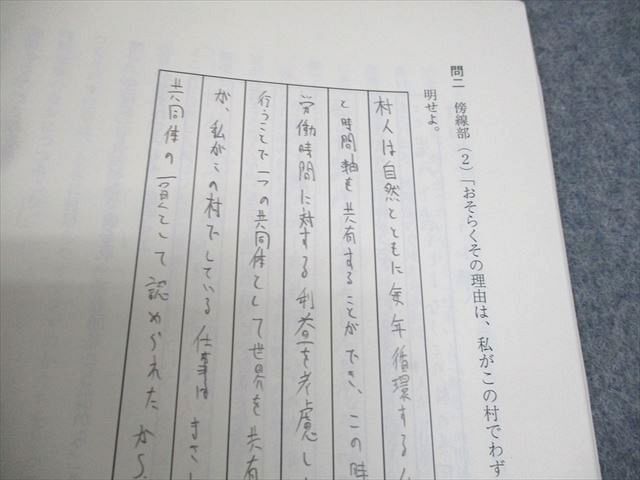 問二　傍線部（2）「おそらくその理由は、私がこの村でわず
明せよ。
村人は自然とともに毎年循環する
と時間軸も共有することができ、この時
労働時間に対する利益を考慮し
行うことで一つの共同体として世界を共有
が、私がこの村でしている仕事は まさし
共同体の一員として認められたから